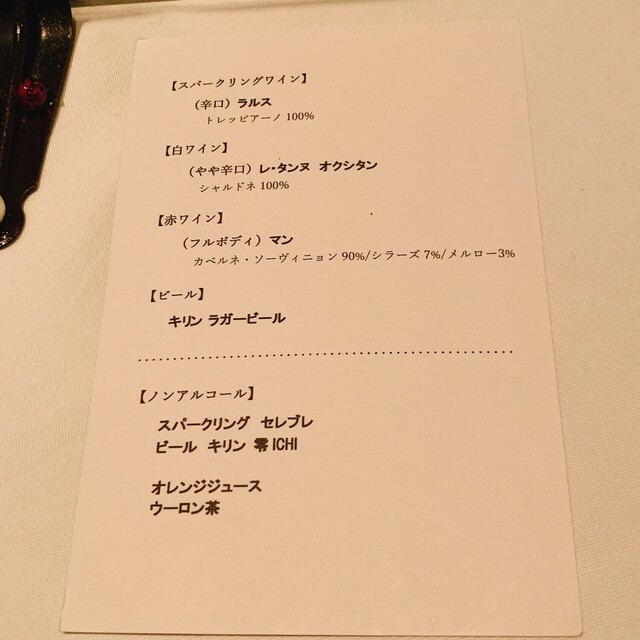 【スパークリングワイン】
（辛口）ラルス
トレッビアーノ 100%
【白ワイン】
（やや辛口）レ・タンヌ オクシタン
シャルドネ 100%
【赤ワイン】
（フルボディ）マン
カベルネ・ソーヴィニョン 90%/シラーズ 7%/メルロー3%
【ビール】
キリン ラガービール
【ノンアルコール】
スパークリング セレブレ
ビール キリン 零ICHI
オレンジジュース
ウーロン茶